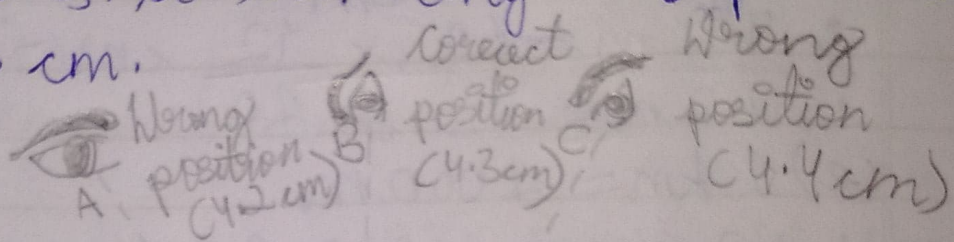 cm.
Wrong
position
(4.2 cm)
A
B
Corecect
position
(4.3cm)
C
Wrong
position
(4.4cm)